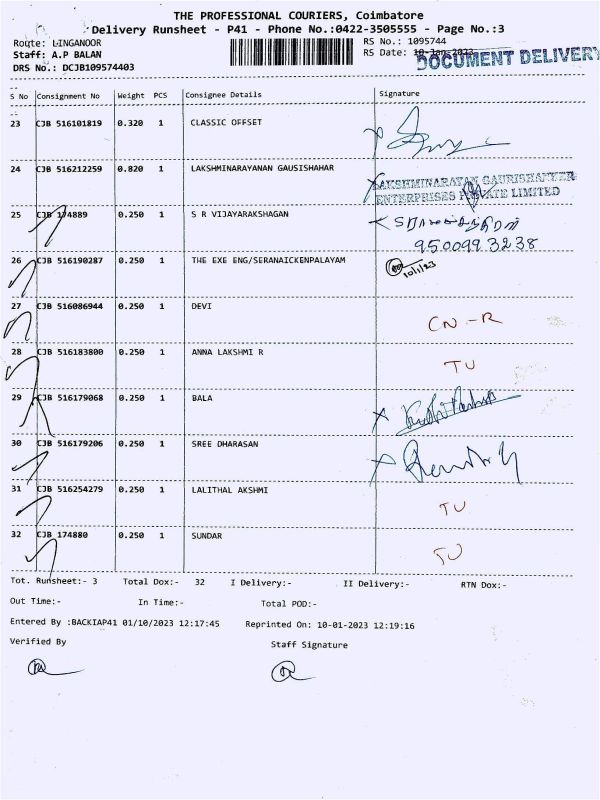 THE PROFESSIONAL COURIERS, Coimbatore
Delivery Runsheet - P41 - Phone No.:0422-3505555 - Page No.:3
Route: LINGANOOR
RS No.: 1095744
Staff: A.P BALAN
RS Date: 10-Jan-2023
DOCUMENT DELIVERY
DRS No.: DCJB109574403
S No Consignment No Weight PCS Consignee Details Signature
23 CJB 516101819 0.320 1 CLASSIC OFFSET
24 CJB 516212259 0.820 1 LAKSHMINARAYANAN GAUSISHAHAR
LAKSHMINARAYAN GAURISHANKER
ENTERPRISES PRIVATE LIMITED
25 CJB 174889 0.250 1 S R VIJAYARAKSHAGAN
9500993238
26 CJB 516190287 0.250 1 THE EXE ENG/SERANAICKENPALAYAM
10/1/23
27 CJB 516086944 0.250 1 DEVI CN-R
28 CJB 516183800 0.250 1 ANNA LAKSHMI R TU
29 CJB 516179068 0.250 1 BALA
30 CJB 516179206 0.250 1 SREE DHARASAN
31 CJB 516254279 0.250 1 LALITHAL AKSHMI TU
32 CJB 174880 0.250 1 SUNDAR TU
Tot. Runsheet:- 3 Total Dox:- 32 I Delivery:- II Delivery:- RTN Dox:-
Out Time:- In Time:- Total POD:-
Entered By :BACKIAP41 01/10/2023 12:17:45 Reprinted On: 10-01-2023 12:19:16
Verified By Staff Signature